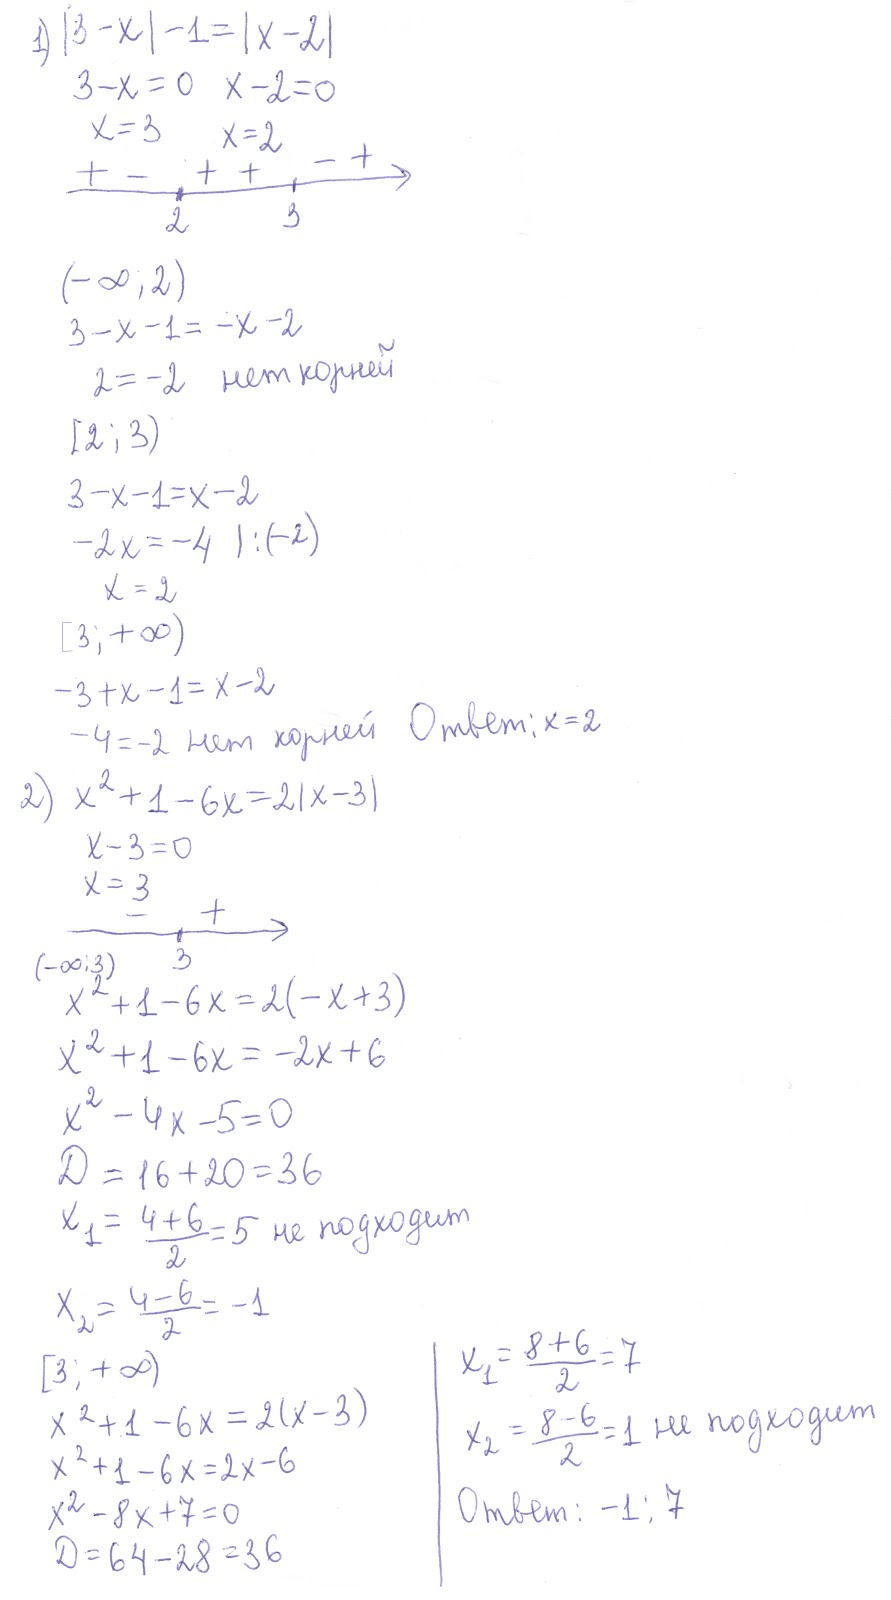 1) |3-x|-1=|x-2|
3-x=0 x-2=0
x=3 x=2
+ - + + - +
2 3
(-∞;2)
3-x-1=-x-2
2=-2 нет корней
[2;3)
3-x-1=x-2
-2x=-4 |:(-2)
x=2
[3;+∞)
-3+x-1=x-2
-4=-2 нет корней Ответ: x=2
2) x²+1-6x=2|x-3|
x-3=0
x=3
- +
(-∞;3) 3
x²+1-6x=2(-x+3)
x²+1-6x=-2x+6
x²-4x-5=0
D=16+20=36
x₁=(4+6)/2=5 не подходит
x₂=(4-6)/2=-1
[3;+∞)
x²+1-6x=2(x-3)
x²+1-6x=2x-6
x²-8x+7=0
D=64-28=36
x₁=(8+6)/2=7
x₂=(8-6)/2=1 не подходит
Ответ: -1;7